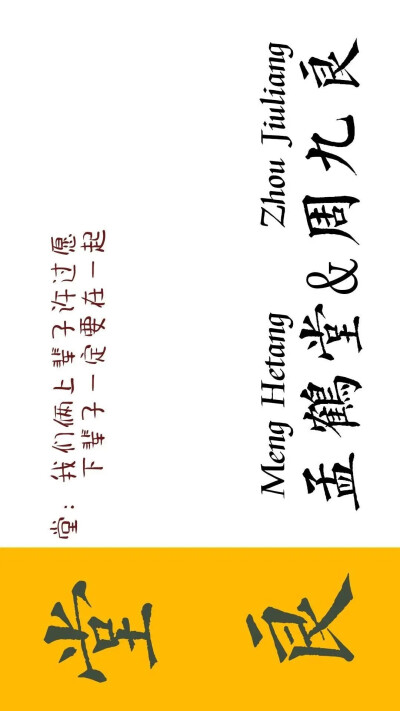 堂：我们俩上辈子许过愿
下辈子一定要在一起
Meng Hetang Zhou Jiuliang
孟鹤堂&周九良
堂
良